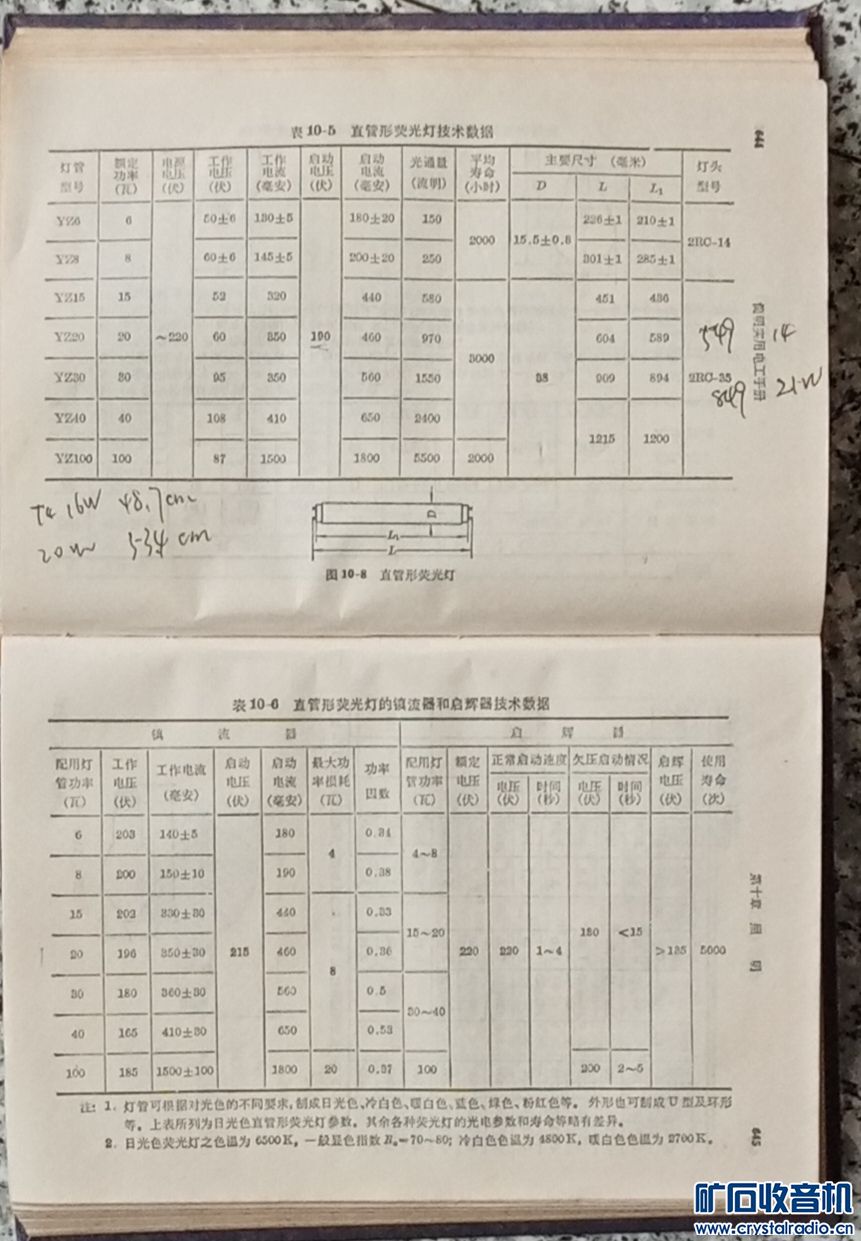 表 10-5 直管形荧光灯技术数据
644
灯管型号 额定功率(瓦) 电源电压(伏) 工作电压(伏) 工作电流(毫安) 启动电压(伏) 启动电流(毫安) 光通量(流明) 平均寿命(小时) 主要尺寸 (毫米) 灯头型号
D L L₁
YZ6 6 ~220 50±6 130±5 190 180±20 150 2000 15.5±0.8 226±1 210±1 2RC-14
YZ8 8 60±6 145±5 200±20 250 301±1 285±1
YZ15 15 52 320 440 580 3000 38 451 436 2RC-35
YZ20 20 60 350 460 970 604 589
YZ30 30 95 350 560 1550 909 894
YZ40 40 108 410 650 2400 1215 1200
YZ100 100 87 1500 1800 5500 2000
实用电工手册
549 14
849 21W
T4 16W 48.7cm
20W 534 cm
D
L₁
L
图 10-8 直管形荧光灯
表 10-6 直管形荧光灯的镇流器和启辉器技术数据
镇流器 启辉器
配用灯管功率(瓦) 工作电压(伏) 工作电流(毫安) 启动电压(伏) 启动电流(毫安) 最大功率损耗(瓦) 功率因数 配用灯管功率(瓦) 额定电压(伏) 正常启动速度 欠压启动情况 启辉电压(伏) 使用寿命(次)
电压(伏) 时间(秒) 电压(伏) 时间(秒)
6 203 140±5 215 180 4 0.34 4~8 220 220 1~4 180 <15 >135 5000
8 200 150±10 190 0.38
15 202 330±30 440 8 0.33 15~20
20 196 350±30 460 0.36
30 180 360±30 560 0.5 30~40
40 165 410±30 650 0.53
100 185 1500±100 1800 20 0.37 100 200 2~5
第十章 照 明
645
注: 1. 灯管可根据对光色的不同要求,制成日光色、冷白色、暖白色、蓝色、绿色、粉红色等。 外形也可制成U型及环形
等。上表所列为日光色直管形荧光灯参数。其余各种荧光灯的光电参数和寿命等略有差异。
2. 日光色荧光灯之色温为6500K, 一般显色指数Rₐ=70~80; 冷白色色温为4800K, 暖白色色温为2700K。
矿石收音机
www.crystalradio.cn